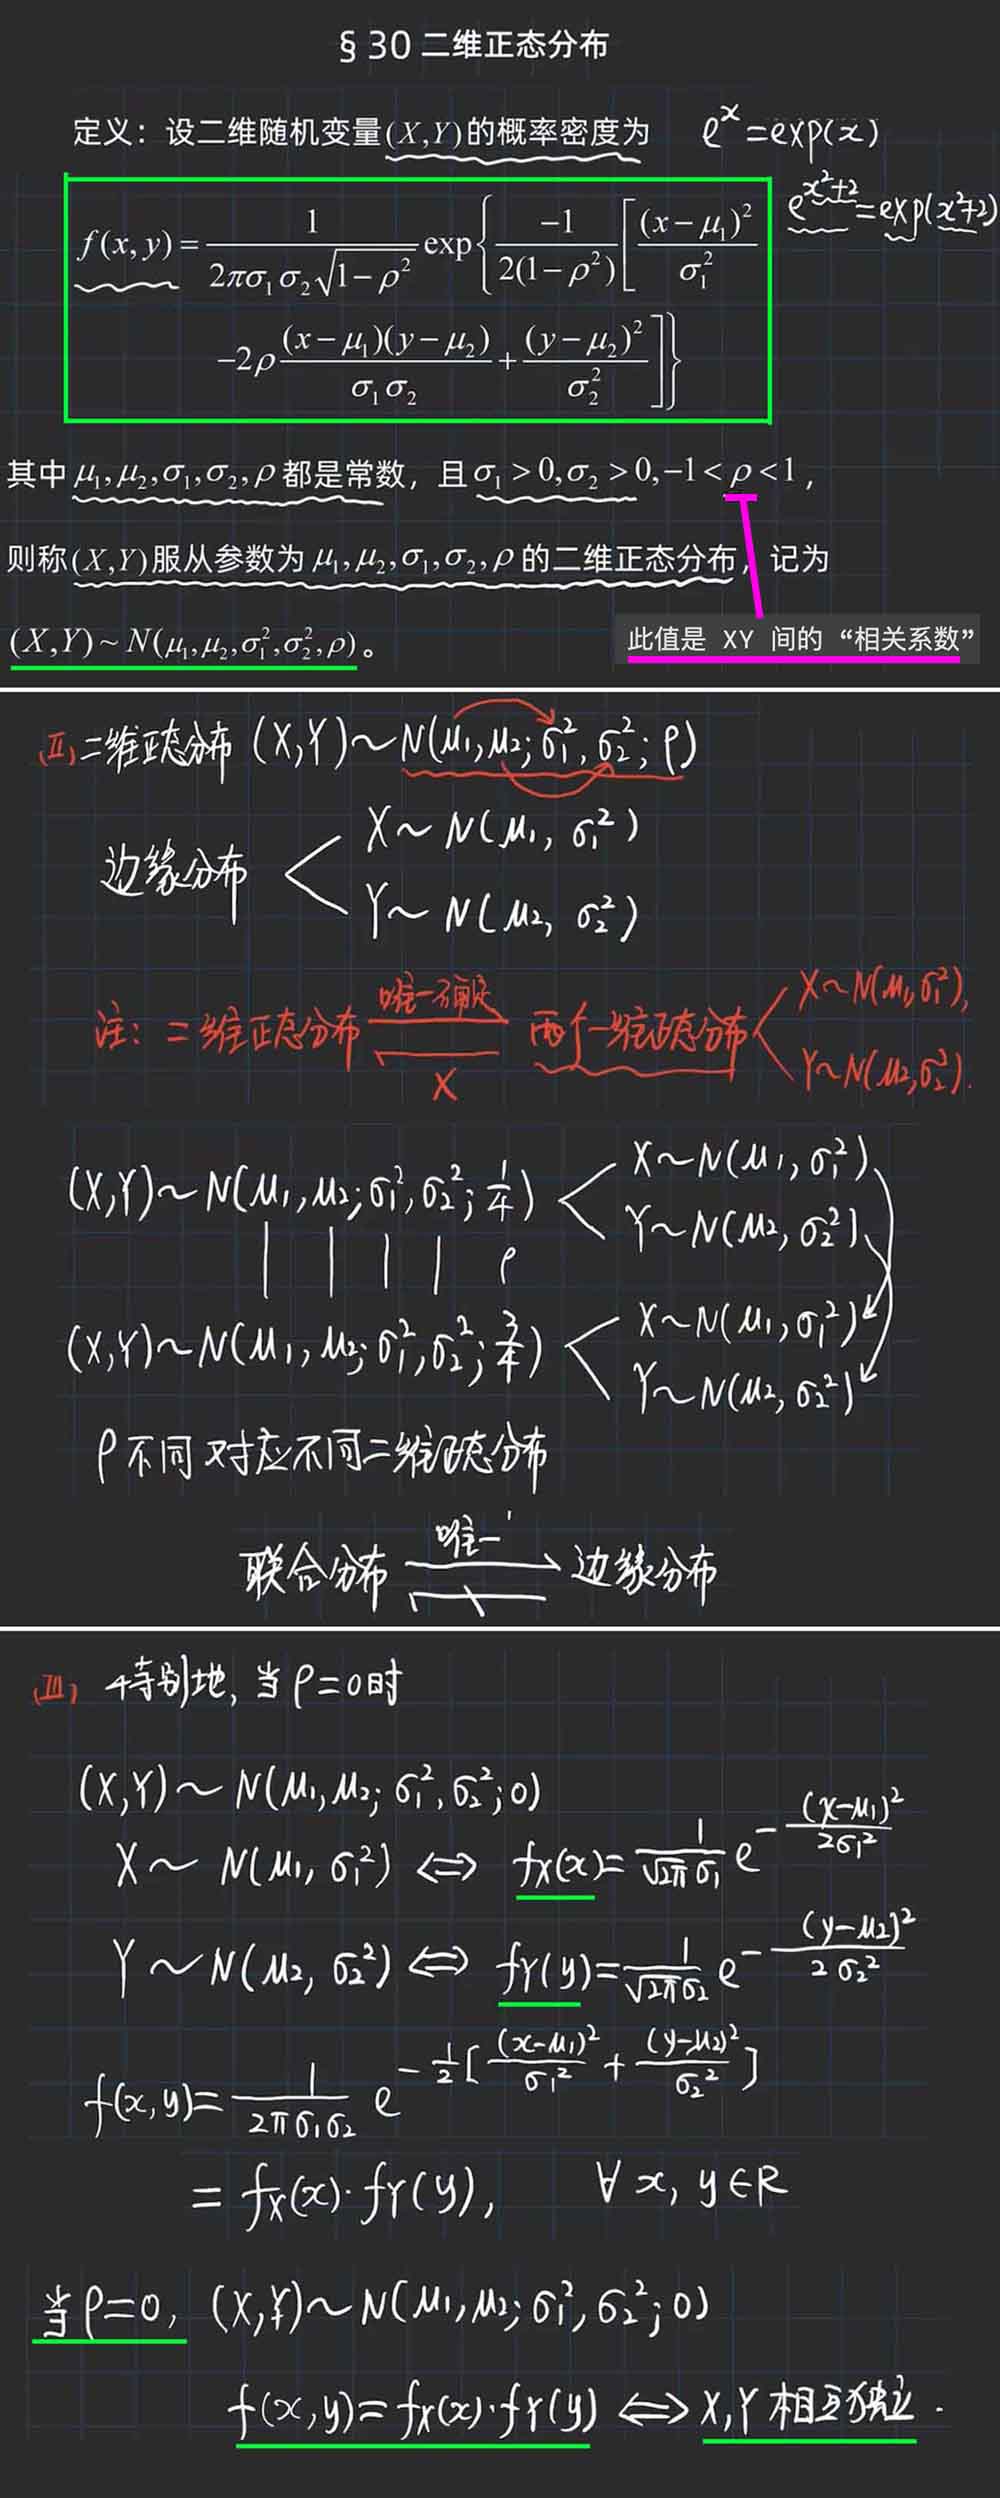 § 30 二维正态分布
定义：设二维随机变量(X,Y)的概率密度为 e^x=exp(x)
e^{x²+2}=exp(x²+2)
f(x,y)=\frac{1}{2πσ₁σ₂\sqrt{1-ρ²}}exp{\frac{-1}{2(1-ρ²)}[\frac{(x-μ₁)²}{σ₁²}
-2ρ\frac{(x-μ₁)(y-μ₂)}{σ₁σ₂}+\frac{(y-μ₂)²}{σ₂²}]}
其中μ₁,μ₂,σ₁,σ₂,ρ都是常数，且σ₁>0,σ₂>0,-1<ρ<1，
则称(X,Y)服从参数为μ₁,μ₂,σ₁,σ₂,ρ的二维正态分布，记为
(X,Y)~N(μ₁,μ₂,σ₁²,σ₂²,ρ)。
此值是 XY 间的“相关系数”
(II) 二维正态分布 (X,Y)~N(μ₁,μ₂;σ₁²,σ₂²;ρ)
X~N(μ₁,σ₁²)
边缘分布
Y~N(μ₂,σ₂²)
注：二维正态分布 唯一确定 两个一维正态分布 X~N(μ₁,σ₁²),
X
Y~N(μ₂,σ₂²).
(X,Y)~N(μ₁,μ₂;σ₁²,σ₂²;\frac{1}{4}) X~N(μ₁,σ₁²)
Y~N(μ₂,σ₂²)
ρ
(X,Y)~N(μ₁,μ₂;σ₁²,σ₂²;\frac{3}{4}) X~N(μ₁,σ₁²)
Y~N(μ₂,σ₂²)
ρ不同对应不同二维正态分布
唯一
联合分布 → 边缘分布
(III) 特别地,当ρ=0时
(X,Y)~N(μ₁,μ₂;σ₁²,σ₂²;0)
X~N(μ₁,σ₁²) ⟺ f_X(x)=\frac{1}{\sqrt{2π}σ₁}e^{-\frac{(x-μ₁)²}{2σ₁²}}
Y~N(μ₂,σ₂²) ⟺ f_Y(y)=\frac{1}{\sqrt{2π}σ₂}e^{-\frac{(y-μ₂)²}{2σ₂²}}
f(x,y)=\frac{1}{2πσ₁σ₂}e^{-\frac{1}{2}[\frac{(x-μ₁)²}{σ₁²}+\frac{(y-μ₂)²}{σ₂²}]}
=f_X(x)·f_Y(y), ∀x,y∈R
当ρ=0, (X,Y)~N(μ₁,μ₂;σ₁²,σ₂²;0)
f(x,y)=f_X(x)·f_Y(y) ⟺ X,Y相互独立.